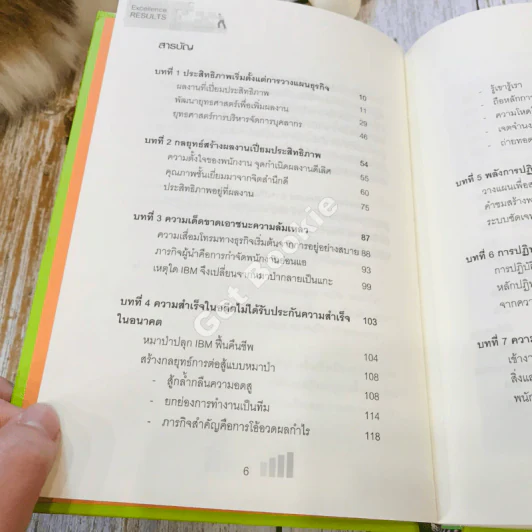 Excellence
RESULTS
สารบัญ
บทที่ 1 ประสิทธิภาพเริ่มตั้งแต่การวางแผนธุรกิจ 10
ผลงานที่เปี่ยมประสิทธิภาพ 11
พัฒนายุทธศาสตร์เพื่อเพิ่มผลงาน 29
ยุทธศาสตร์การบริหารจัดการบุคลากร 46
บทที่ 2 กลยุทธ์สร้างผลงานเปี่ยมประสิทธิภาพ 54
ความตั้งใจของพนักงาน จุดกำเนิดผลงานดีเลิศ 55
คุณภาพชั้นเยี่ยมมาจากจิตสำนึกดี 60
ประสิทธิภาพอยู่ที่ผลงาน 75
บทที่ 3 ความเด็ดขาดเอาชนะความล้มเหลว 87
ความเสื่อมโทรมทางธุรกิจเริ่มต้นจากการอยู่อย่างสบาย 88
ภารกิจผู้นำคือการกำจัดพนักงานอ่อนแอ 93
เหตุใด IBM จึงเปลี่ยนจากหมาป่ากลายเป็นแกะ 99
บทที่ 4 ความสำเร็จในอดีตไม่ได้รับประกันความสำเร็จ 103
ในอนาคต
หมาป่าปลุก IBM ฟื้นคืนชีพ 104
สร้างกลยุทธ์การต่อสู้แบบหมาป่า 108
- สู้กล้ำกลืนความอดสู 108
- ยกย่องการทำงานเป็นทีม 114
- ภารกิจสำคัญคือการโอ้อวดผลกำไร 118
6
Get Bookie
- รู้เขารู้เรา
- ถือหลักการ
- ความโหด
- เจตจำนง
- ถ่ายทอด
บทที่ 5 พลังการปฏิ
วางแผนเพื่อ
คำชมสร้างพ
ระบบชัดเจ
บทที่ 6 การปฏิบั
การปฏิบัติ
หลักปฏิบั
จากควา
บทที่ 7 ความ
เข้างา
สิ่งแ
พนัก